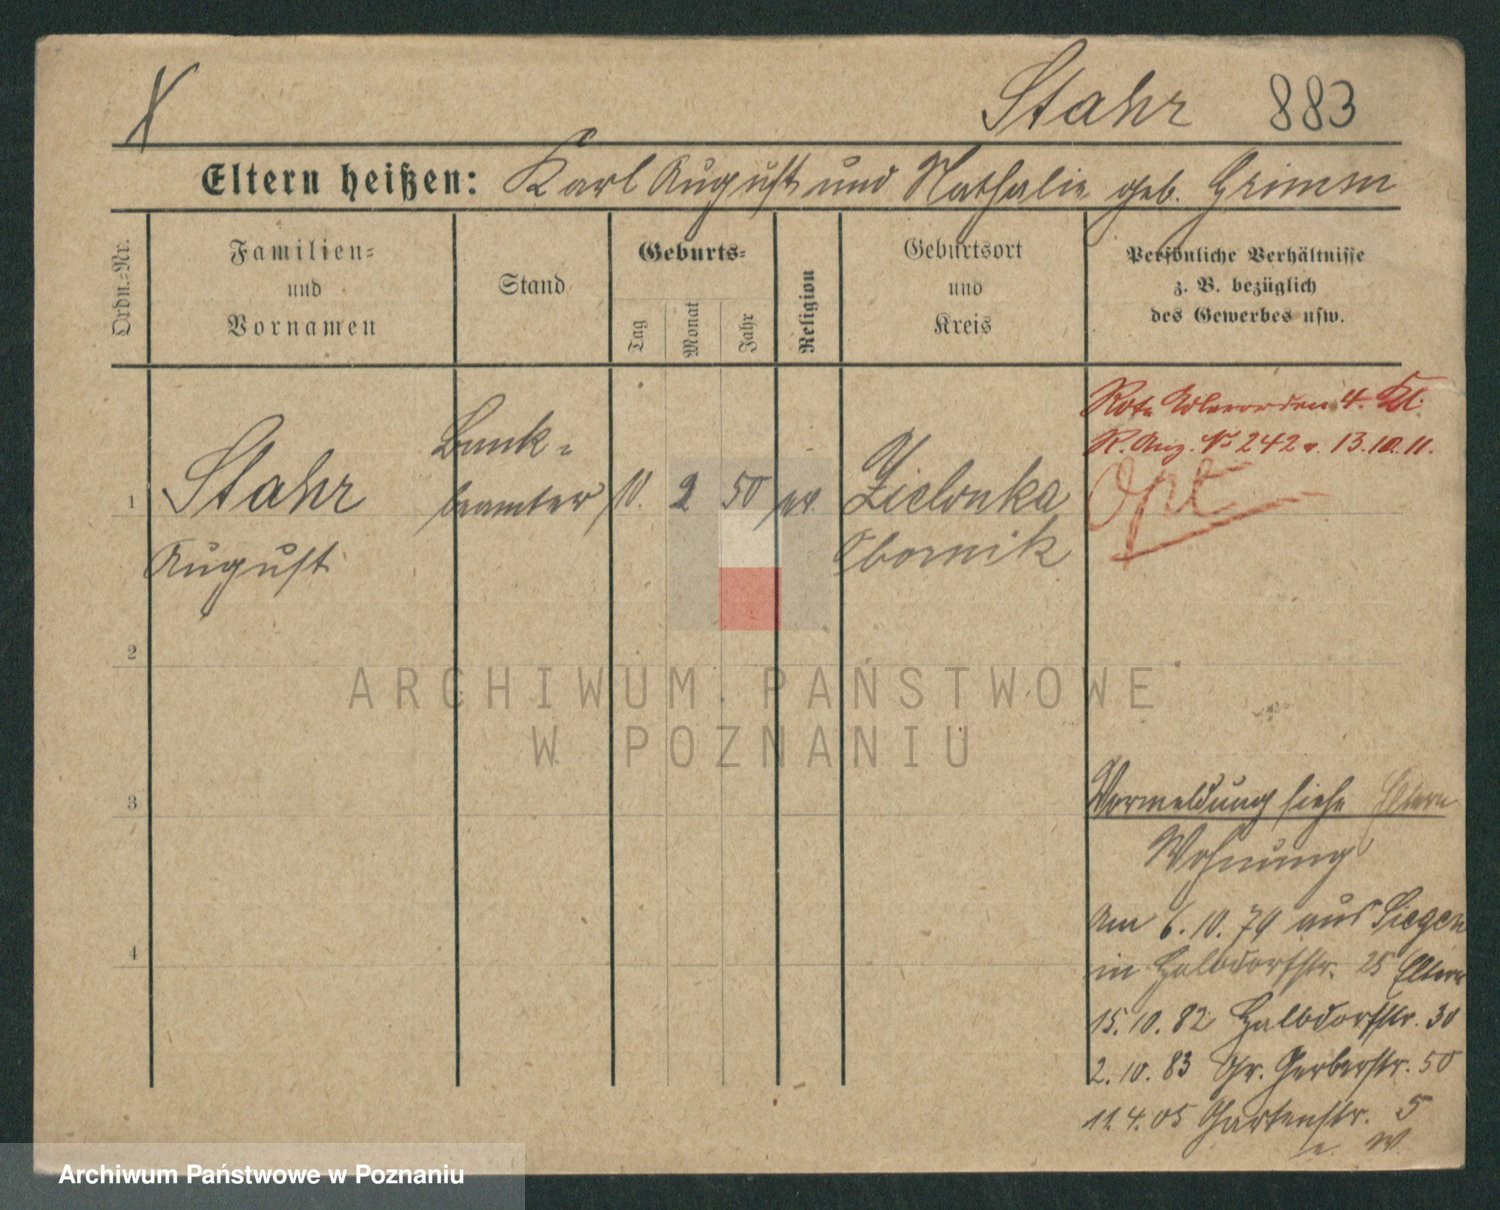 Stahr 883
Eltern heißen: Karl August und Nathalie geb. Grimm
Ordn.-Nr.
Familien-
und
Vornamen
Stand
Geburts-
Tag
Monat
Jahr
Religion
Geburtsort
und
Kreis
Persönliche Verhältnisse
z. B. bezüglich
des Gewerbes usw.
Rote Adlerorden 4. Kl.
R. Anz. No 242 v. 13.10.11.
Opt
1
Stahr
August
Bank-
beamter
10. 2 50 ev.
Zielonka
Obornik
2
3
4
ARCHIWUM PAŃSTWOWE
W POZNANIU
Vormeldung siehe Eltern
Wohnung
Am 6.10.79 aus Siegen
in Halbdorfstr. 25 Eltern
15.10.82 Halbdorfstr. 30
2.10.83 Gr. Gerberstr. 50
11.4.05 Gartenstr. 5
Archiwum Państwowe w Poznaniu